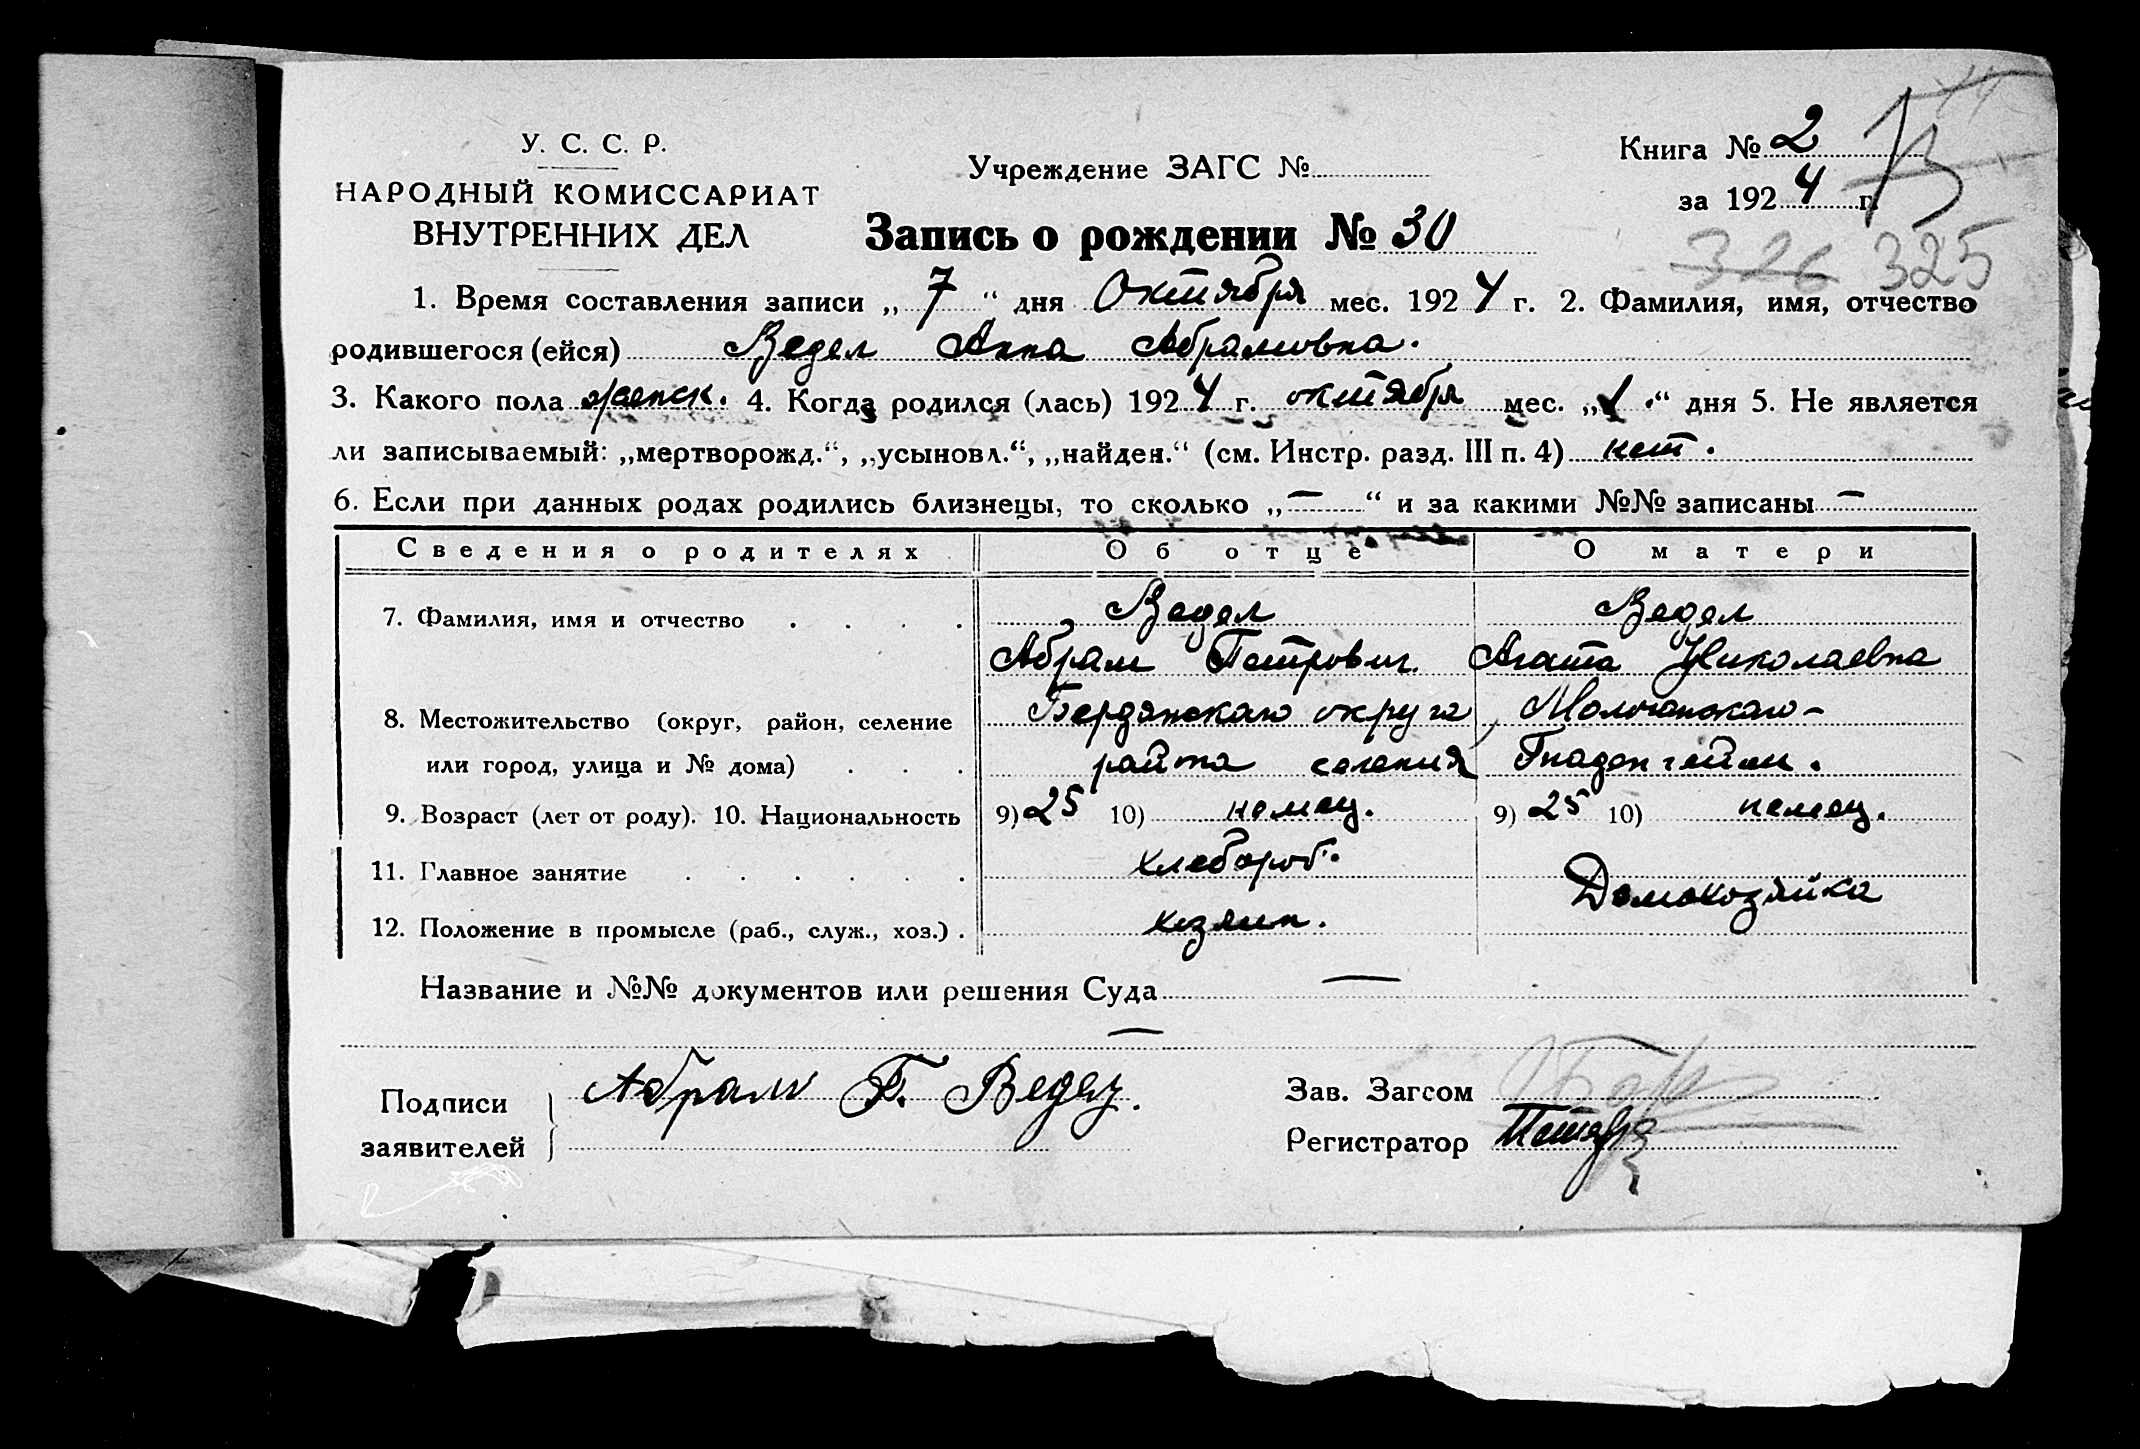 У. С. С. Р.
НАРОДНЫЙ КОМИССАРИАТ
ВНУТРЕННИХ ДЕЛ
Учреждение ЗАГС №
Книга № 2
за 1924 г.
13
326 325
Запись о рождении № 30
1. Время составления записи „ 7 “ дня Октября мес. 1924 г. 2. Фамилия, имя, отчество
родившегося (ейся) Ведел Анна Абрамовна.
3. Какого пола женск. 4. Когда родился (лась) 1924 г. октября мес. „ 1 .“ дня 5. Не является
ли записываемый: „мертворожд.“, „усыновл.“, „найден.“ (см. Инстр. разд. III п. 4) нет.
6. Если при данных родах родились близнецы, то сколько „ — “ и за какими №№ записаны —
Сведения о родителях Об отце О матери
7. Фамилия, имя и отчество . . . . Ведел Ведел
Абрам Петрович. Агата Николаевна
8. Местожительство (округ, район, селение Бердянскаго округа, Молочанскаго-
или город, улица и № дома) . . . района селения Гнаденгейм.
9. Возраст (лет от роду). 10. Национальность 9) 25 10) немец. 9) 25 10) немец.
11. Главное занятие . . . . . . хлебороб. Домохозяйка
12. Положение в промысле (раб., служ., хоз.) . хозяин.
Название и №№ документов или решения Суда —
—
Подписи
заявителей
Абрам П. Ведел.
Зав. Загсом
Регистратор